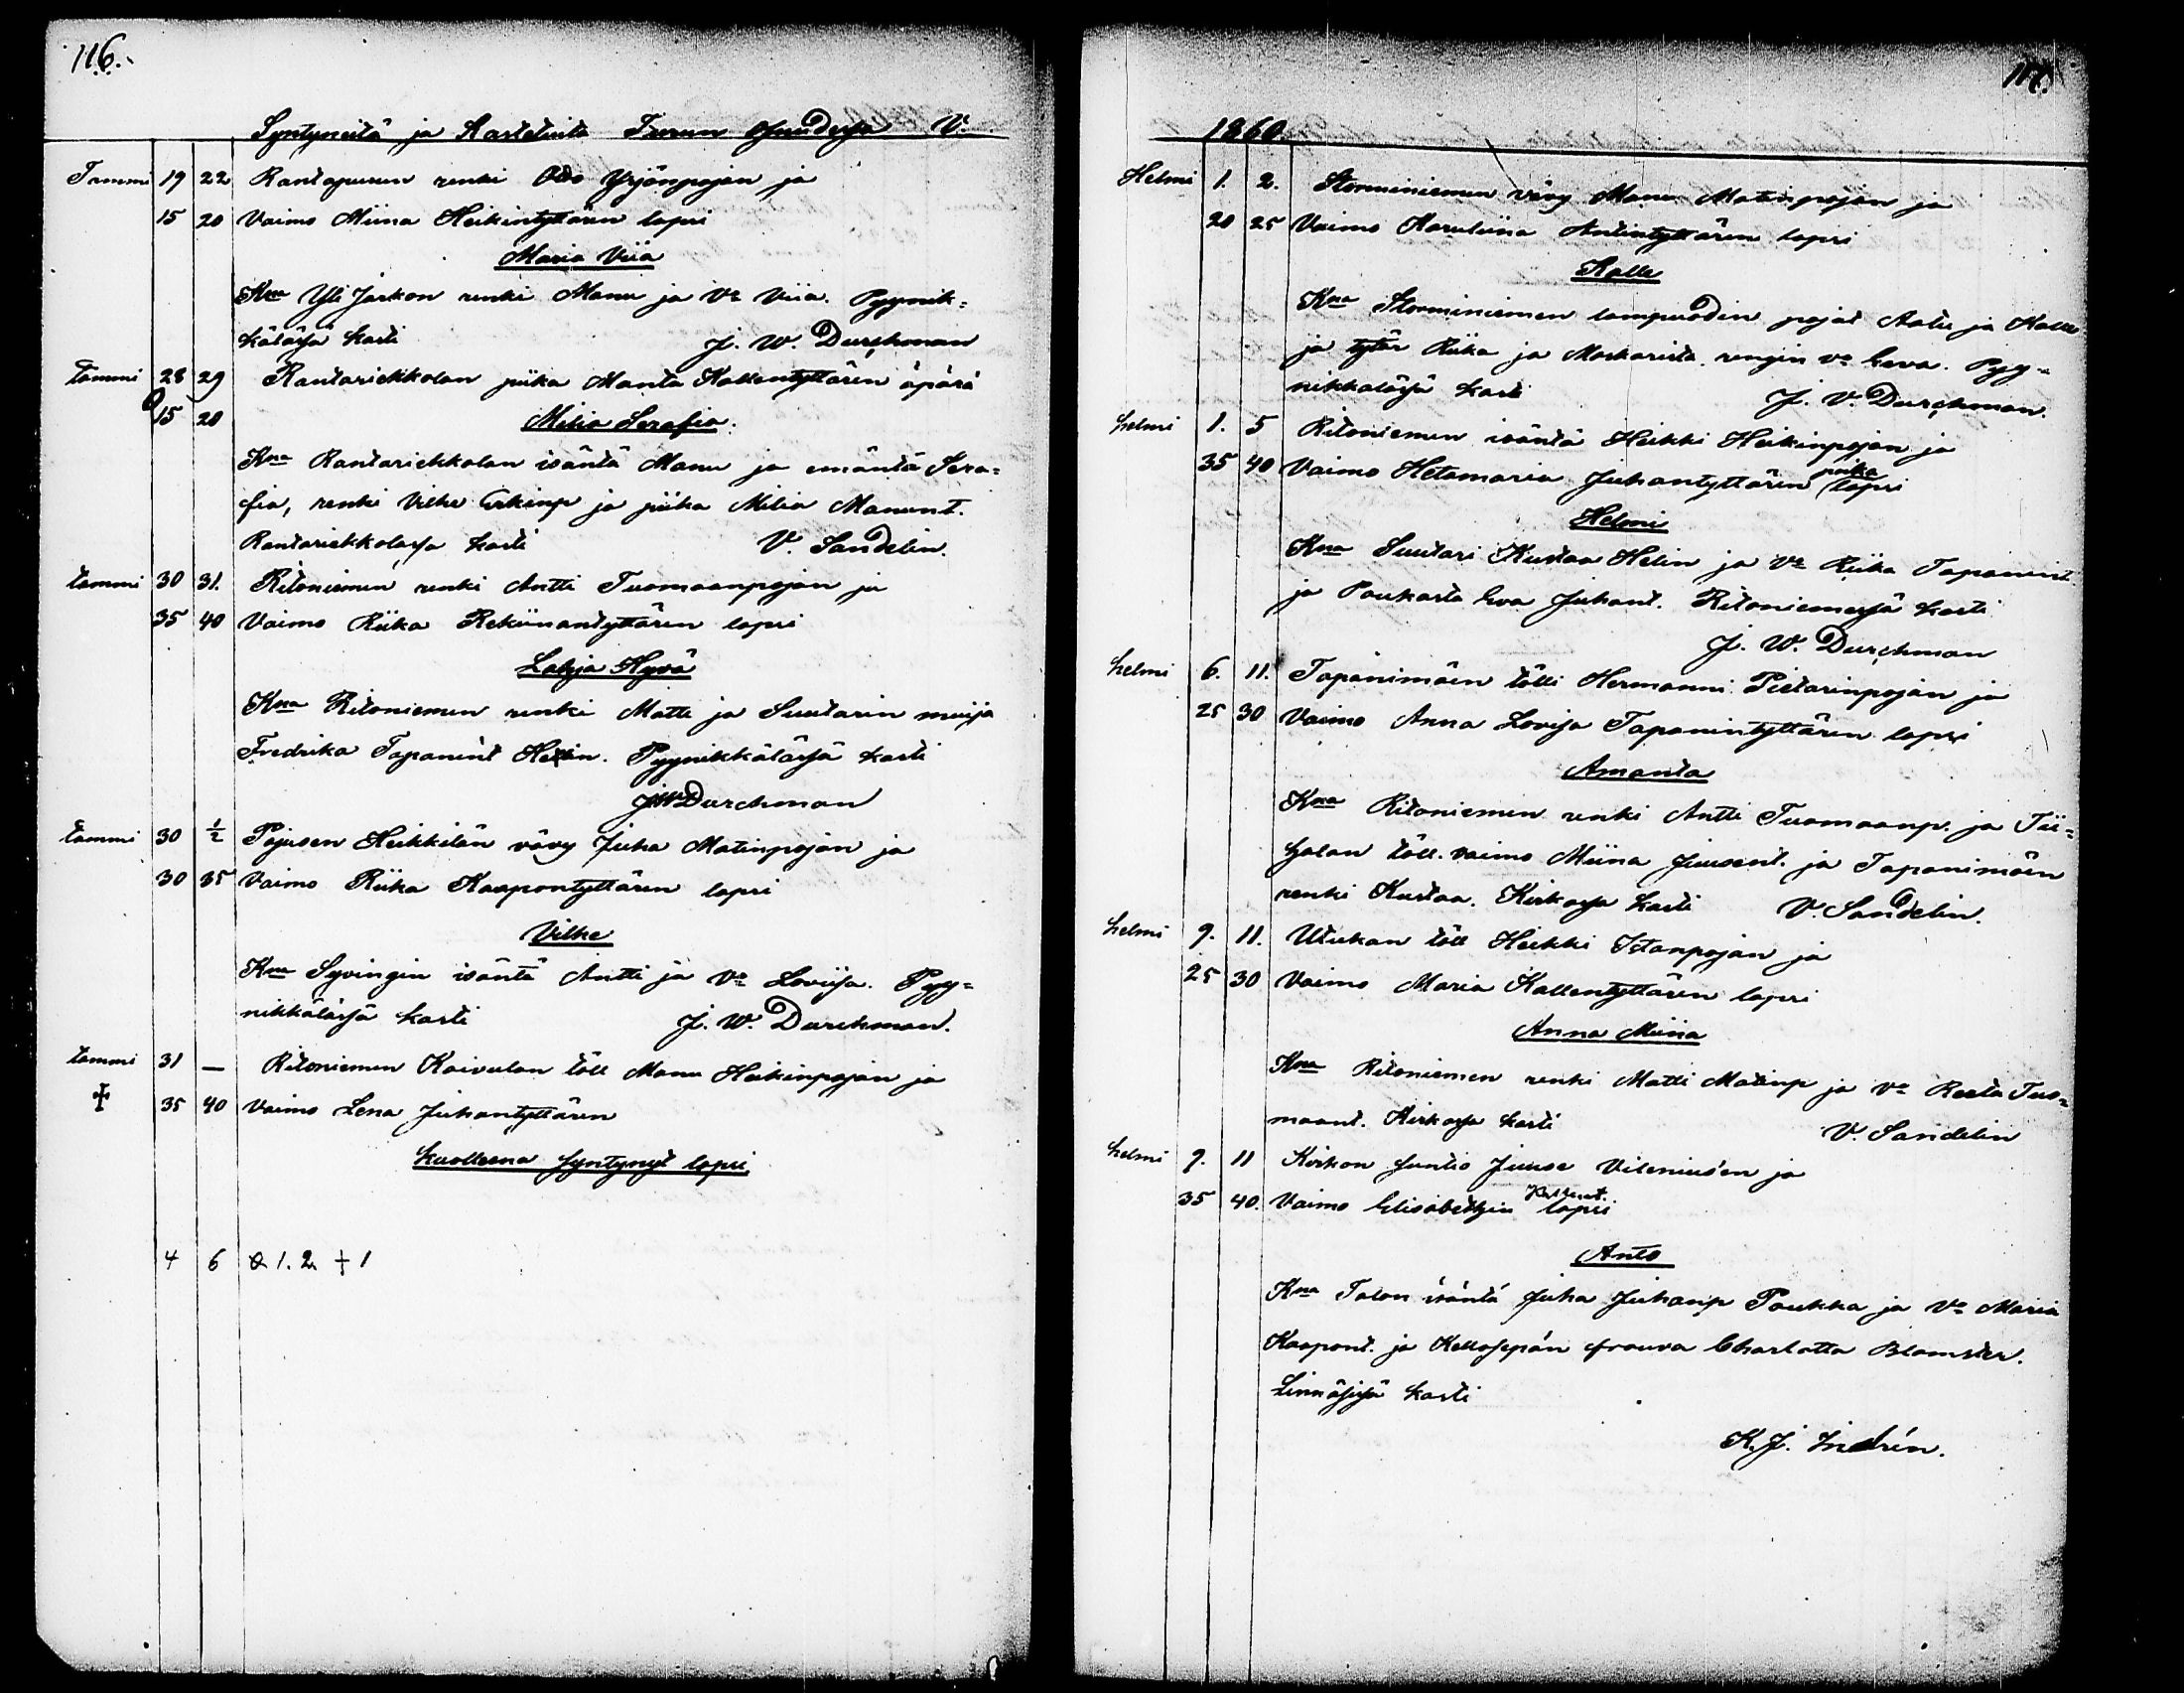 116.
Syntyneitä ja Kastetuita Turun V.
Tammi 19 22 Rantapusun renki Otto Yrjönpojan ja
15 20 Vaimo Miina Heikintyttären lapsi
Maria Viia
Kna Yli Jaskon renki Manu ja Vo Viia. Pyynik=
kälässä kasti J. W. Durchman
Tammi 28 29 Rantariekkolan piika Manta Kallentyttären äpärä
15 20 Milia Serafia.
Kna Rantariekkolan isäntä Manu ja emäntä Sera=
fia, renki Vilke Erkinp ja piika Milia Manunt.
Rantariekkolassa kasti V. Sandelin.
tammi 30 31. Ritoniemen renki Antti Tuomaanpojan ja
35 40 Vaimo Riika Rekiinantyttären lapsi
Lahja Hyvä
Kna Ritoniemen renki Matti ja Suutarin muija
Fredrika Tapanint Helin. Pyynikkälässä kasti
JW Durchman
tammi 30 1/2 Pajusen Heikkilän vävy Juha Matinpojan ja
30 35 Vaimo Riika Kaapontyttären lapsi
Vilke
Kna Syvingin isäntä Antti ja Vo Loviisa. Pyy=
nikkälässä kasti J. W. Durchman.
tammi 31 — Ritoniemen Koivulan töll Manu Heikinpojan ja
✝ 35 40 Vaimo Lena Juhantyttären
kuolleena syntynyt lapsi
4 6 1. 2 + 1
117.
1860.
Helmi 1. 2. Storminiemen vävy Manu Matinpojan ja
20 25 Vaimo Karuliina Antintyttären lapsi
Kalle
Kna Storminiemen lampuodin pojat Aatu ja Kalle
ja tytär Riika ja Maskarista rengin vo Eeva. Pyy=
nikkälässä kasti J. V. Durchman.
helmi 1. 5 Ritoniemen isäntä Heikki Heikinpojan ja
35 40 Vaimo Hetamaria Juhantyttären poika lapsi
Helmi
Kna Suutari Kustaa Helin ja Vo Riika Tapanint.
ja Paukasta Eva Juhant. Ritoniemessä kasti
J. W. Durchman
helmi 6. 11. Tapanimäen tölli Hermanni Pietarinpojan ja
25 30 Vaimo Anna Lovisa Tapanintyttären lapsi
Amanta
Kna Ritoniemen renki Antti Tuomaanp. ja Tii=
halan töll. vaimo Miina Juusent. ja Tapanimäen
renki Kustaa. Kirkossa kasti V. Sandelin.
helmi 9. 11. Utukan töll Heikki Istanpojan ja
25 30 Vaimo Maria Kallentyttären lapsi
Anna Miina
Kna Ritoniemen renki Matti Matinp ja Vo Reeta Tuo=
maant. Kirkossa kasti V. Sandelin
helmi 9. 11 Kirkon suntio Juuse Vileniusen ja
35 40. Vaimo Elisabethin Kallent. lapsi
Anto
Kna Talon isäntä Juha Juhanp Paukka ja Vo Maria
Kaapont. ja Kellosepän frouva Charlotta Blomster.
Linnässä kasti
K. J. Indrén.